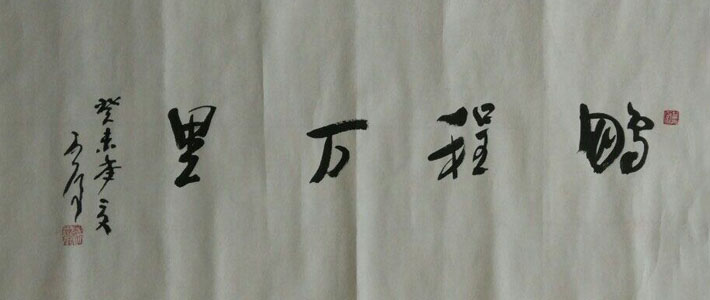 鹏程万里
癸未年文